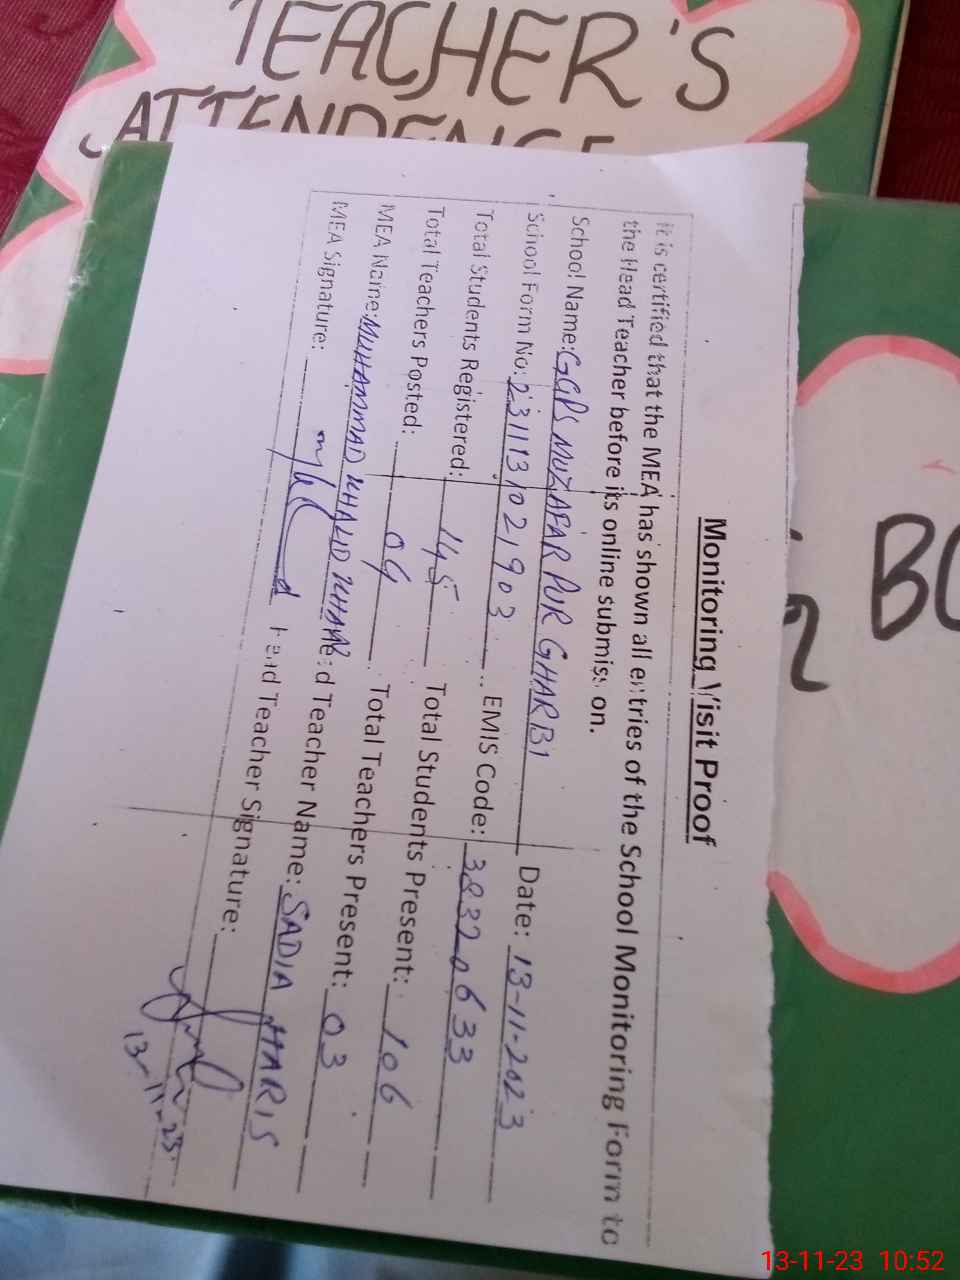 TEACHER'S
ATTENDENCE
BO
Monitoring Visit Proof
It is certified that the MEA has shown all entries of the School Monitoring Form to
the Head Teacher before its online submission.
School Name: GGPS MUZAFAR PUR GHARBI Date: 13-11-2023
School Form No: 2311131021903 EMIS Code: 38320633
Total Students Registered: 145 Total Students Present: 106
Total Teachers Posted: 04 Total Teachers Present: 03
MEA Name: MUHAMMAD KHALID KHAN Head Teacher Name: SADIA HARIS
MEA Signature: Head Teacher Signature:
13-11-23.
13-11-23 10:52